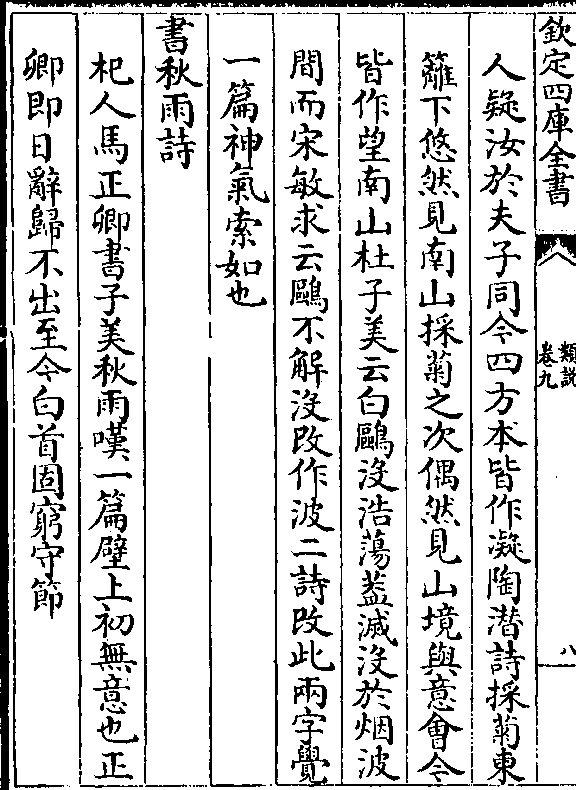 欽定四庫全書
類説
卷九
八
人疑汝於夫子同今四方本皆作凝陶潜詩採菊東
籬下悠然見南山採菊之次偶然見山境與意會今
皆作望南山杜子美云白鷗没浩蕩葢滅没於烟波
間而宋敏求云鷗不解没改作波二詩改此兩字覺
一篇神氣索如也
書秋雨詩
杞人馬正卿書子美秋雨嘆一篇壁上初無意也正
卿即日辭歸不出至今白首固窮守節